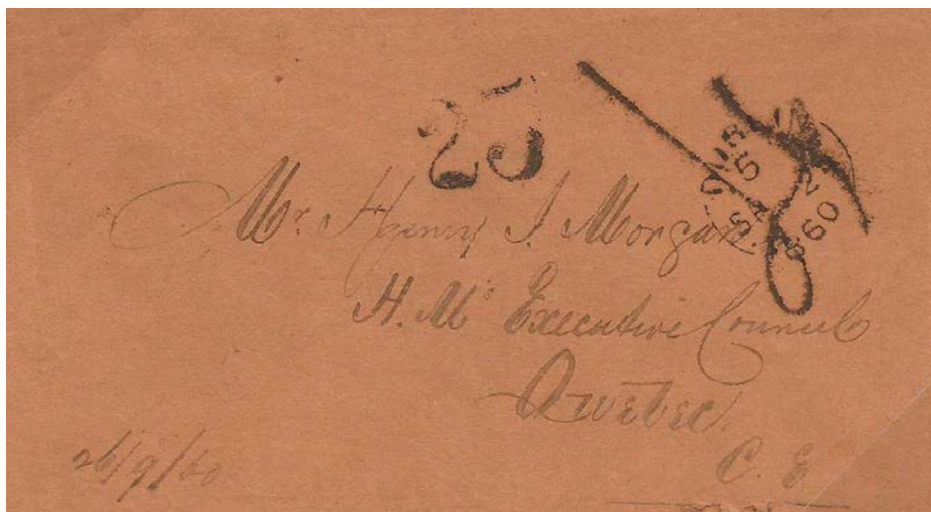 25
DUBLIN
Mr. Henry J. Morgan
H. M's Executive Council
Quebec.
26/9/60
C. E